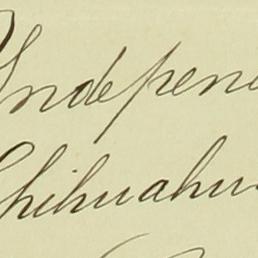 Indepen
Chihuahu